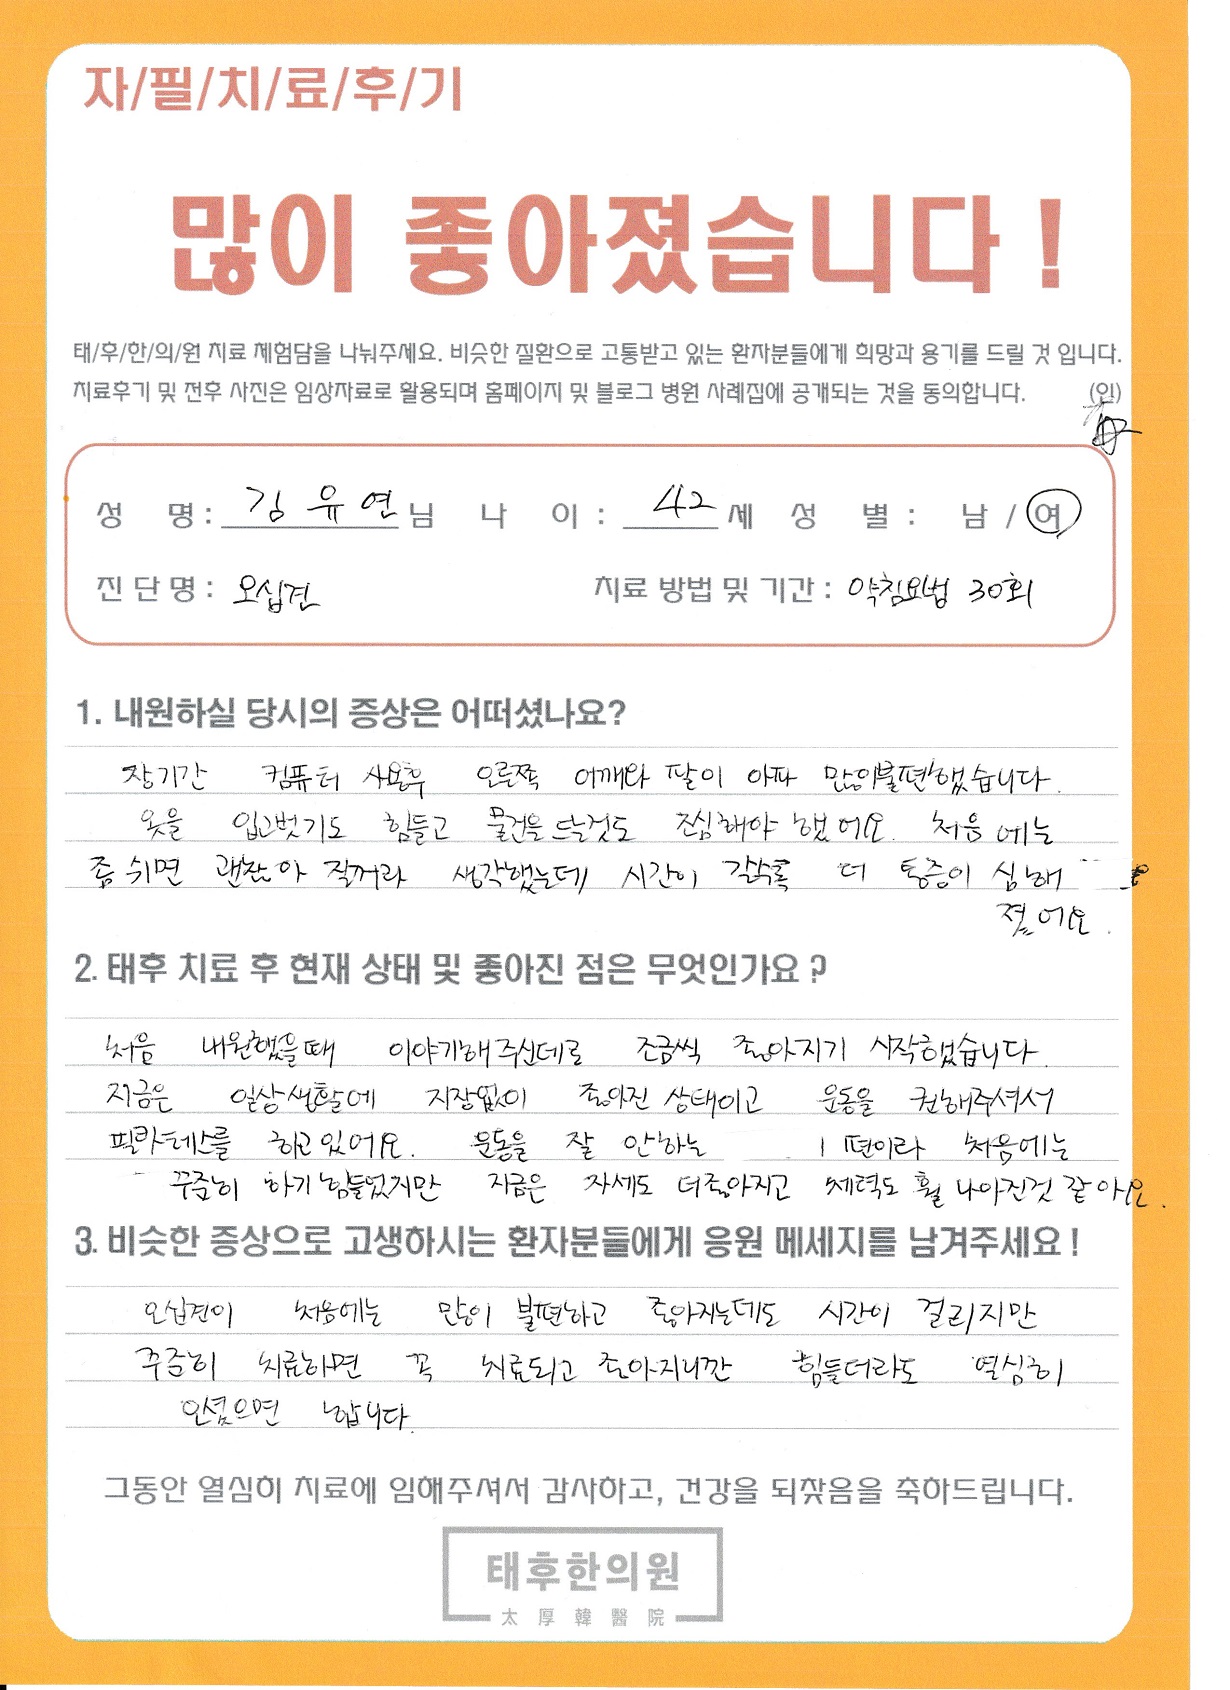 자/필/치/료/후/기
많이 좋아졌습니다!
태/후/한/의/원 치료 체험담을 나눠주세요. 비슷한 질환으로 고통받고 있는 환자분들에게 희망과 용기를 드릴 것 입니다.
치료후기 및 전후 사진은 임상자료로 활용되며 홈페이지 및 블로그 병원 사례집에 공개되는 것을 동의합니다. (인)
성 명 : 김유연 님 나 이 : 42 세 성 별 : 남 / 여
진 단 명 : 오십견 치료 방법 및 기간 : 약침요법 30회
1. 내원하실 당시의 증상은 어떠셨나요?
장기간 컴퓨터 사용후 오른쪽 어깨와 팔이 아파 많이불편했습니다.
옷을 입고벗기도 힘들고 물건을 드는것도 조심해야 했어요. 처음에는
좀 쉬면 괜찮아 질꺼라 생각했는데 시간이 갈수록 더 통증이 심해
졌어요.
2. 태후 치료 후 현재 상태 및 좋아진 점은 무엇인가요?
처음 내원했을때 이야기해주신데로 조금씩 좋아지기 시작했습니다.
지금은 일상생활에 지장없이 좋아진 상태이고 운동을 권해주셔서
필라테스를 하고있어요. 운동을 잘 안하는 편이라 처음에는
꾸준히 하기 힘들었지만 지금은 자세도 더좋아지고 체력도 훨 나아진것 같아요.
3. 비슷한 증상으로 고생하시는 환자분들에게 응원 메세지를 남겨주세요!
오십견이 처음에는 많이 불편하고 좋아지는데도 시간이 걸리지만
꾸준히 치료하면 꼭 치료되고 좋아지니깐 힘들더라도 열심히
오셨으면 합니다.
그동안 열심히 치료에 임해주셔서 감사하고, 건강을 되찾음을 축하드립니다.
태후한의원
太厚韓醫院